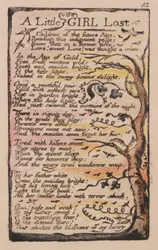 52
A Little GIRL Lost
Children of the future Age,
Reading this indignant page;
Know that in a former time,
Love! sweet Love! was thought a crime.
In the Age of Gold,
Free from winters cold:
Youth and maiden bright,
To the holy light,
Naked in the sunny beams delight.
Once a youthful pair
Fill'd with softest care:
Met in garden bright,
Where the holy light,
Had just removd the curtains of the night.
There in rising day,
On the grass they play:
Parents were afar:
Strangers came not near:
And the maiden soon forgot her fear.
Tired with kisses sweet
They agree to meet,
When the silent sleep
Waves o'er heavens deep:
And the weary tired wanderers weep.
To her father white
Came the maiden bright:
But his loving look,
Like the holy book,
All her tender limbs with terror shook.